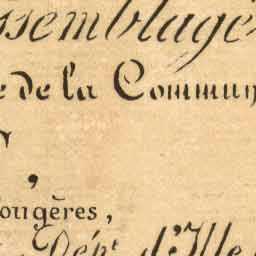 ssemblage
e de la Commun
,
ougères,
Dépt d'Ille